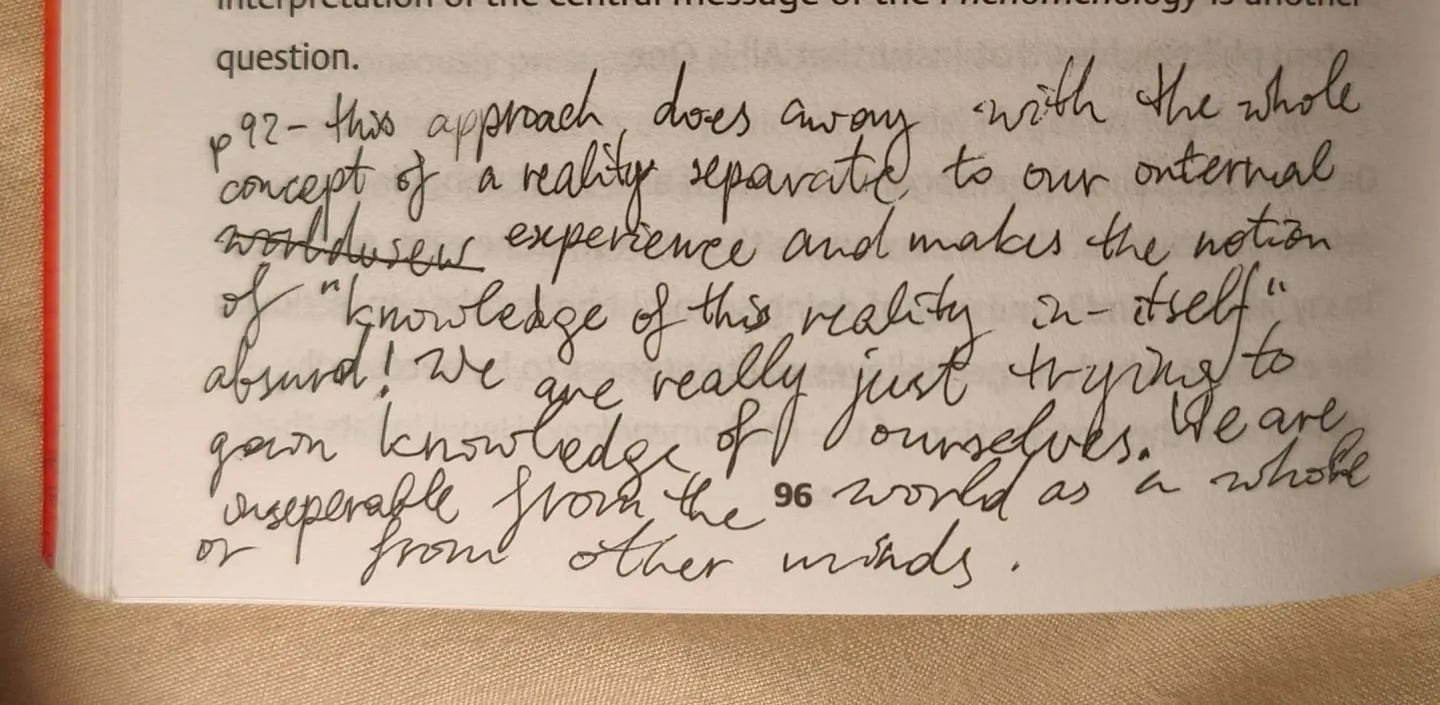 interpretation of the central message of the Phenomenology is another
question.
p92 - this approach, does away with the whole
concept of a reality separate to our internal
experience and makes the notion
of "knowledge of this reality in-itself"
absurd! We are really just trying to
gain knowledge of ourselves. We are
inseperable from the 96 world as a whole
or from other minds.